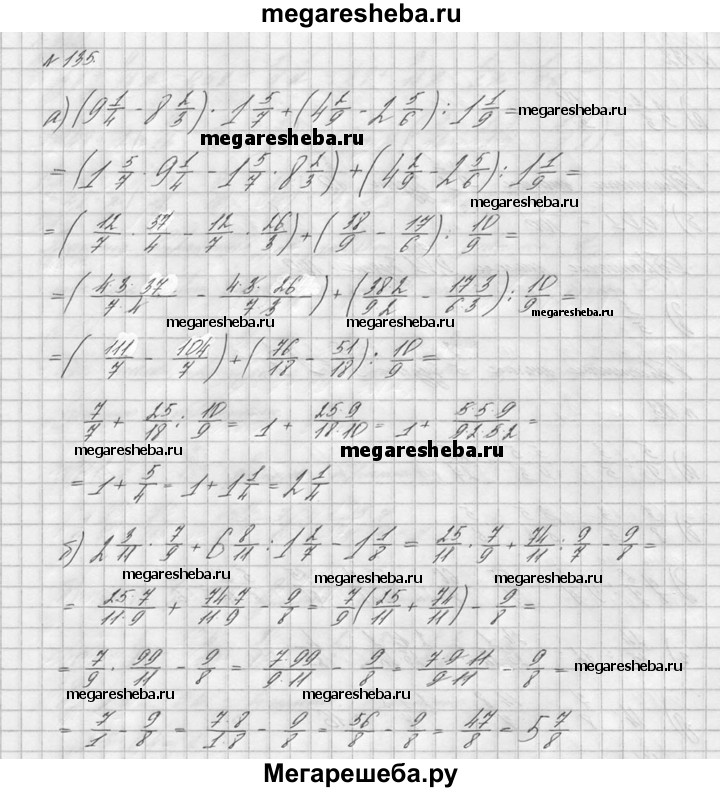 megaresheba.ru
№ 135.
а) (9 1/4 - 8 2/3) · 1 5/7 + (4 2/9 - 2 5/6) : 1 1/9 =
megaresheba.ru
megaresheba.ru
= (1 5/7 · 9 1/4 - 1 5/7 · 8 2/3) + (4 2/9 - 2 5/6) : 1 1/9 =
megaresheba.ru
= (12/7 · 37/4 - 12/7 · 26/3) + (38/9 - 17/6) : 10/9 =
= (4·3·37/7·4 - 4·3·26/7·3) + (38 2/9 2 - 17 3/6 3) : 10/9 =
megaresheba.ru megaresheba.ru megaresheba.ru
= (111/7 - 104/7) + (76/18 - 51/18) : 10/9 =
7/7 + 25/18 : 10/9 = 1 + 25·9/18·10 = 1 + 5·5·9/9 2·5 2 =
megaresheba.ru megaresheba.ru
= 1 + 5/4 = 1 + 1 1/4 = 2 1/4
б) 2 3/11 · 7/9 + 6 8/11 : 1 2/7 - 1 1/8 = 25/11 · 7/9 + 74/11 : 9/7 - 9/8 =
megaresheba.ru megaresheba.ru megaresheba.ru
= 25·7/11·9 + 74 7/11 9 - 9/8 = 7/9 (25/11 + 74/11) - 9/8 =
= 7/9 · 99/11 - 9/8 = 7·99/9·11 - 9/8 = 7·9·11/9·11 - 9/8 =
megaresheba.ru megaresheba.ru megaresheba.ru
= 7/1 - 9/8 = 7·8/1·8 - 9/8 = 56/8 - 9/8 = 47/8 = 5 7/8
Мегарешеба.ру